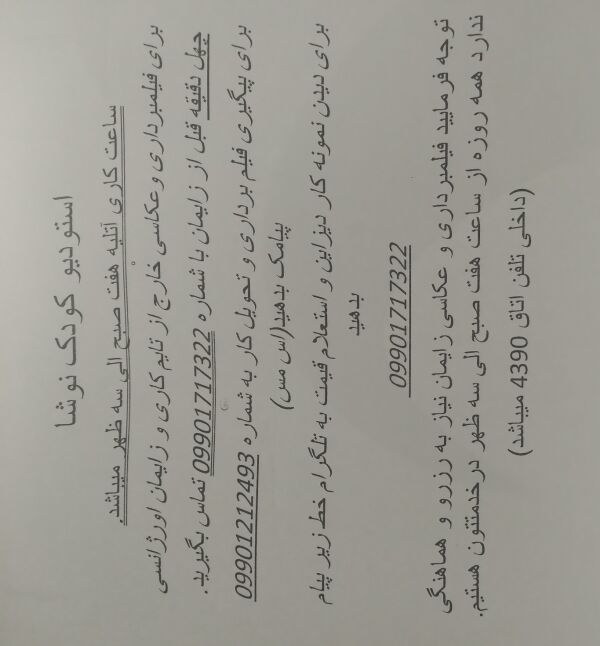 استودیو کودک نوشا
ساعت کاری آتلیه هفت صبح الی سه ظهر میباشد.
برای فیلمبرداری وعکاسی خارج از تایم کاری و زایمان اورژانسی
چهل دقیقه قبل از زایمان با شماره 09901717322 تماس بگیرید.
برای پیگیری فیلم برداری و تحویل کار به شماره 09901212493
پیامک بدهید(اس مس)
برای دیدن نمونه کار دیزاین و استعلام قیمت به تلگرام خط زیر پیام
بدهید
09901717322
توجه فرمایید فیلمبرداری و عکاسی زایمان نیاز به رزرو و هماهنگی
ندارد همه روزه از ساعت هفت صبح الی سه ظهر درخدمتتون هستیم.
(داخلی تلفن اتاق 4390 میباشد)